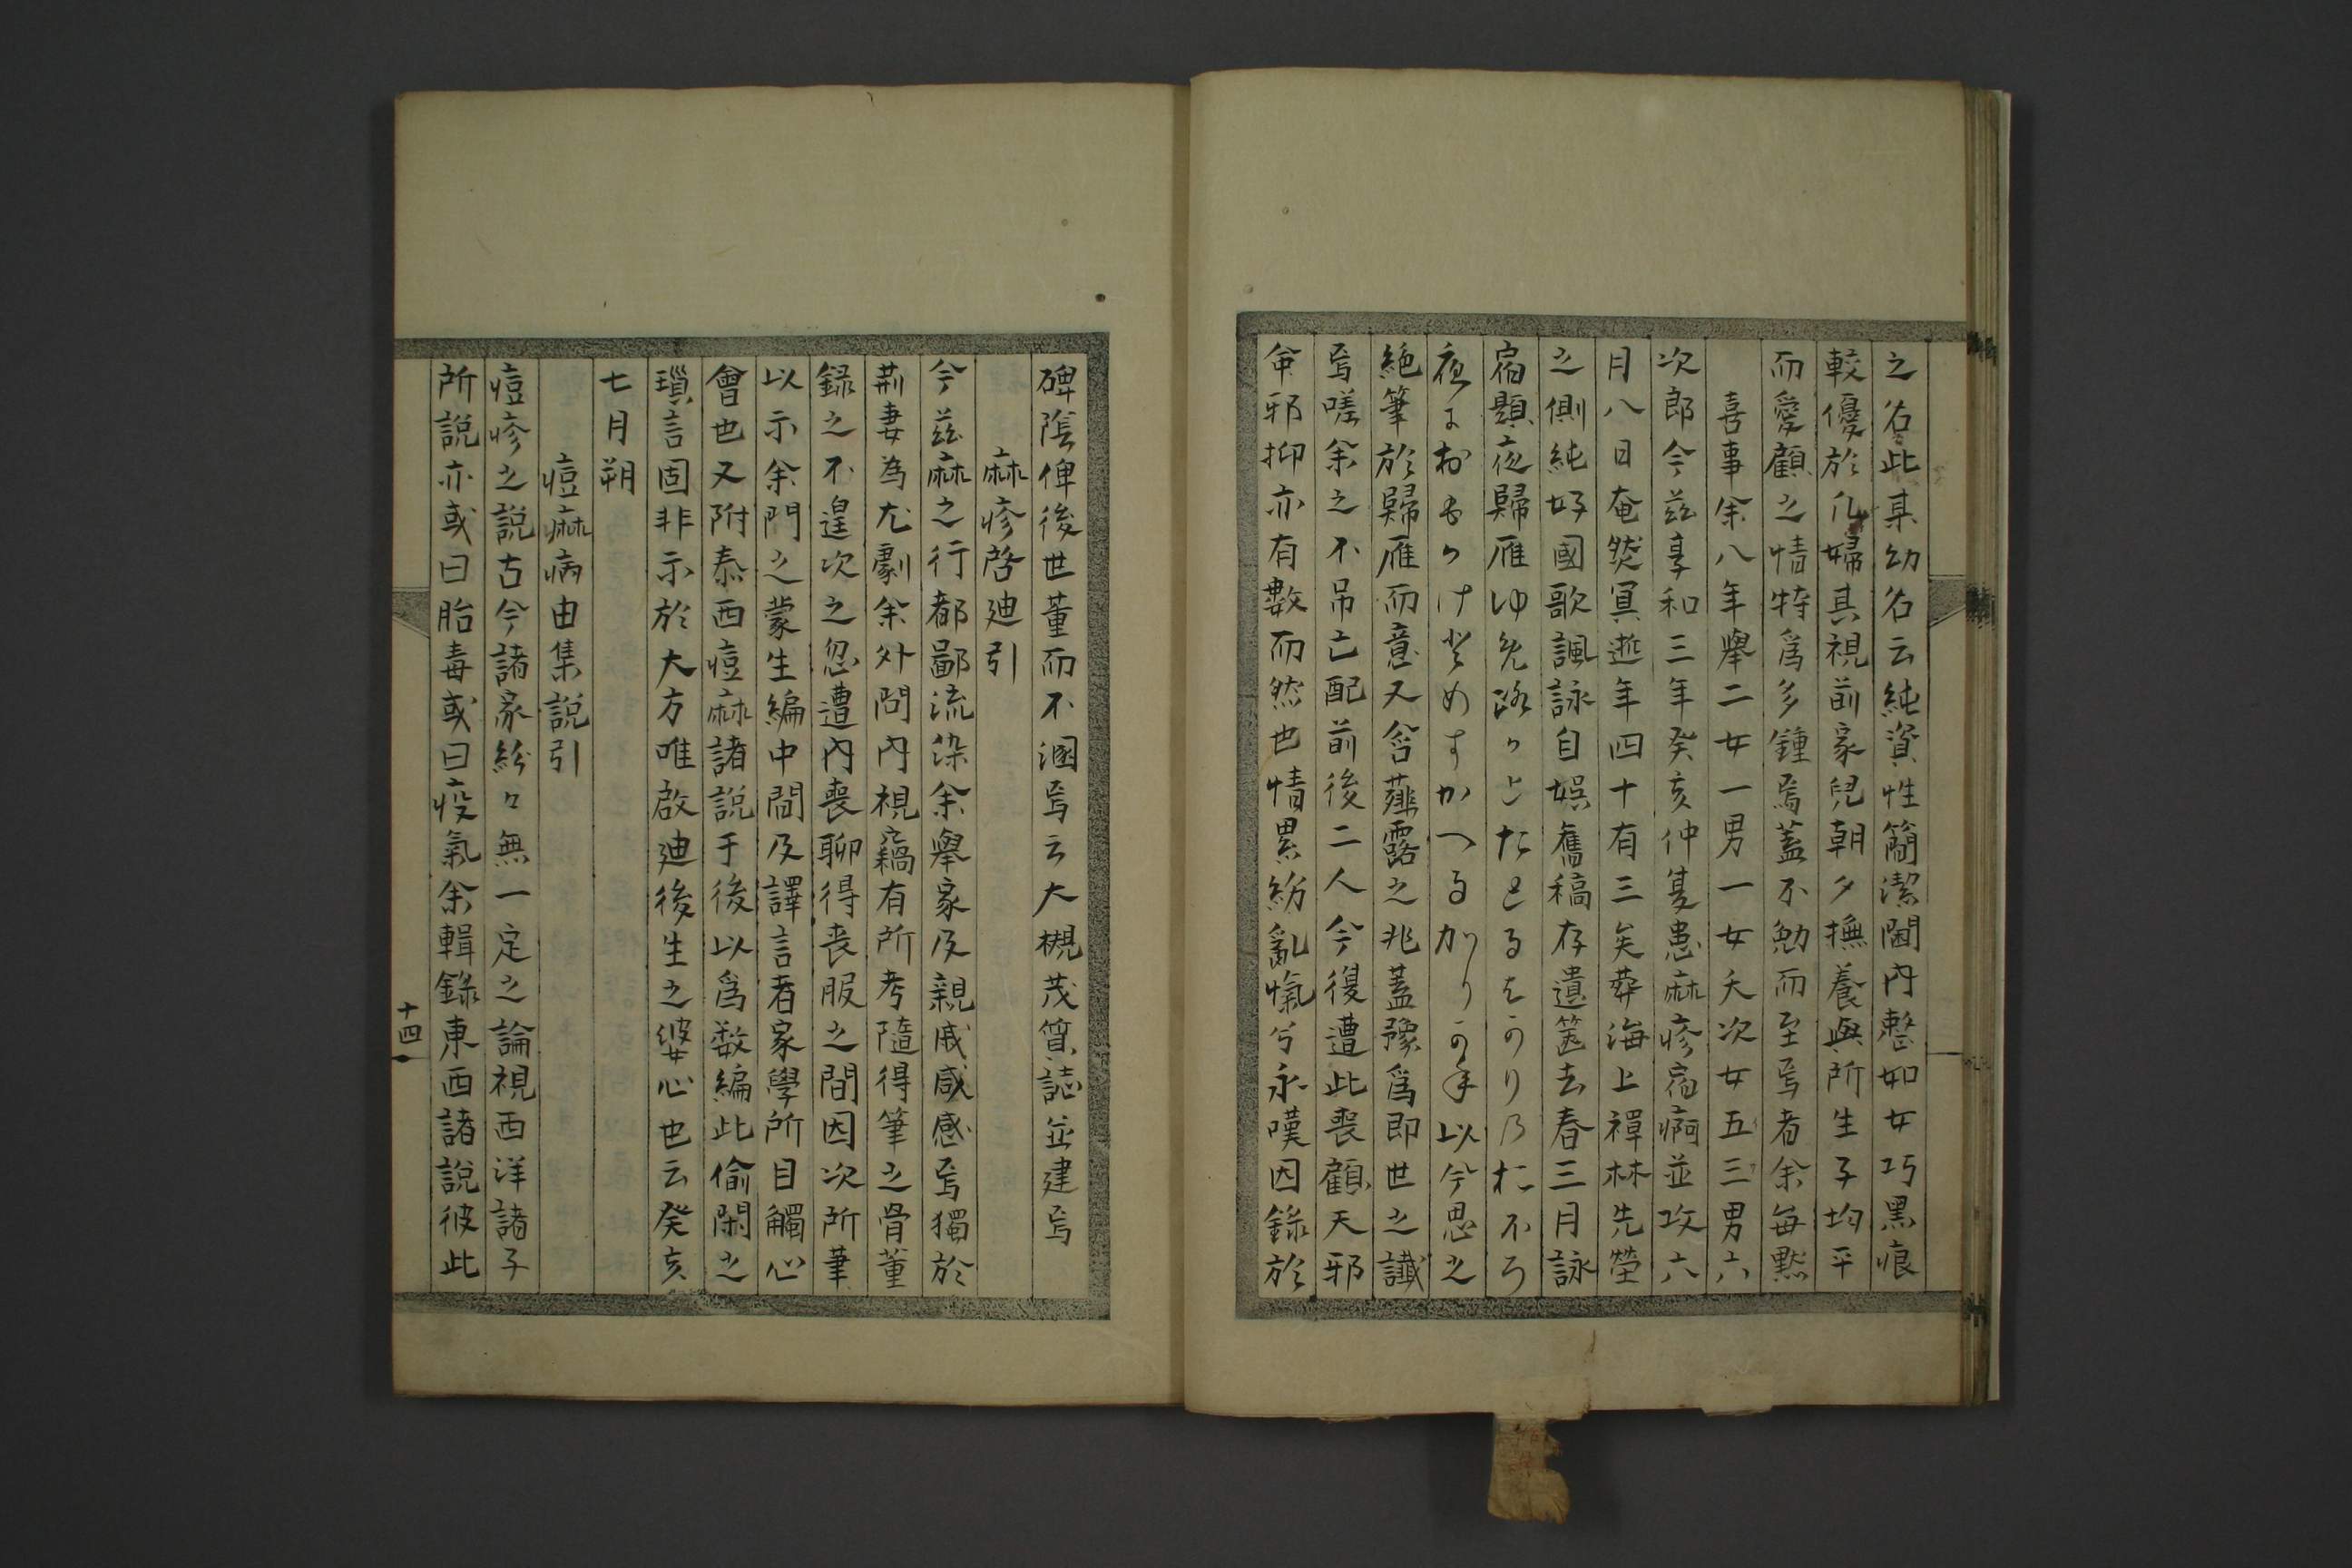 之名此某幼名云純資性簡潔閫内整如女巧黑痕
較優於凡婦其視前家兒朝夕撫養與所生子均平
而愛顧之情特爲多鍾焉蓋不勉而至焉者余每黙
喜事余八年擧二女一男一女夭次女五三男六
次郎今茲享和三年癸亥仲夏患麻疹宿痾並攻六
月八日奄然冥逝年四十有三矣葬海上禪林先塋
之側純好國歌諷詠自娯舊稿存遺篋去春三月詠
宿題夜歸雁
絶筆於歸雁而意又含薤露之兆蓋豫爲即世之讖
焉嗟余之不吊亡配前後二人今復遭此喪顧天邪
命邪抑亦有數而然也情累紛亂愾兮永嘆因錄於
碑陰俾後世董而不溷焉云大槻茂質誌並建焉
麻疹啓廸引
今茲麻之行都鄙流染余擧家及親戚咸感焉獨於
荊妻為尤劇余外問内視竊有所考隨得筆之骨董
録之不遑次之忽遭内喪聊得丧服之間因次所筆
以示余門之蒙生編中間及譯言者家學所目觸心
會也又附泰西痘麻諸說于後以爲数編此偷閑之
瑣言固非示於大方唯啟廸後生之婆心也云癸亥
七月朔
痘麻病由集說引
痘疹之說古今諸家紛々無一定之論視西洋諸子
所說亦或曰胎毒或曰疫氣余輯錄東西諸說彼此
十四